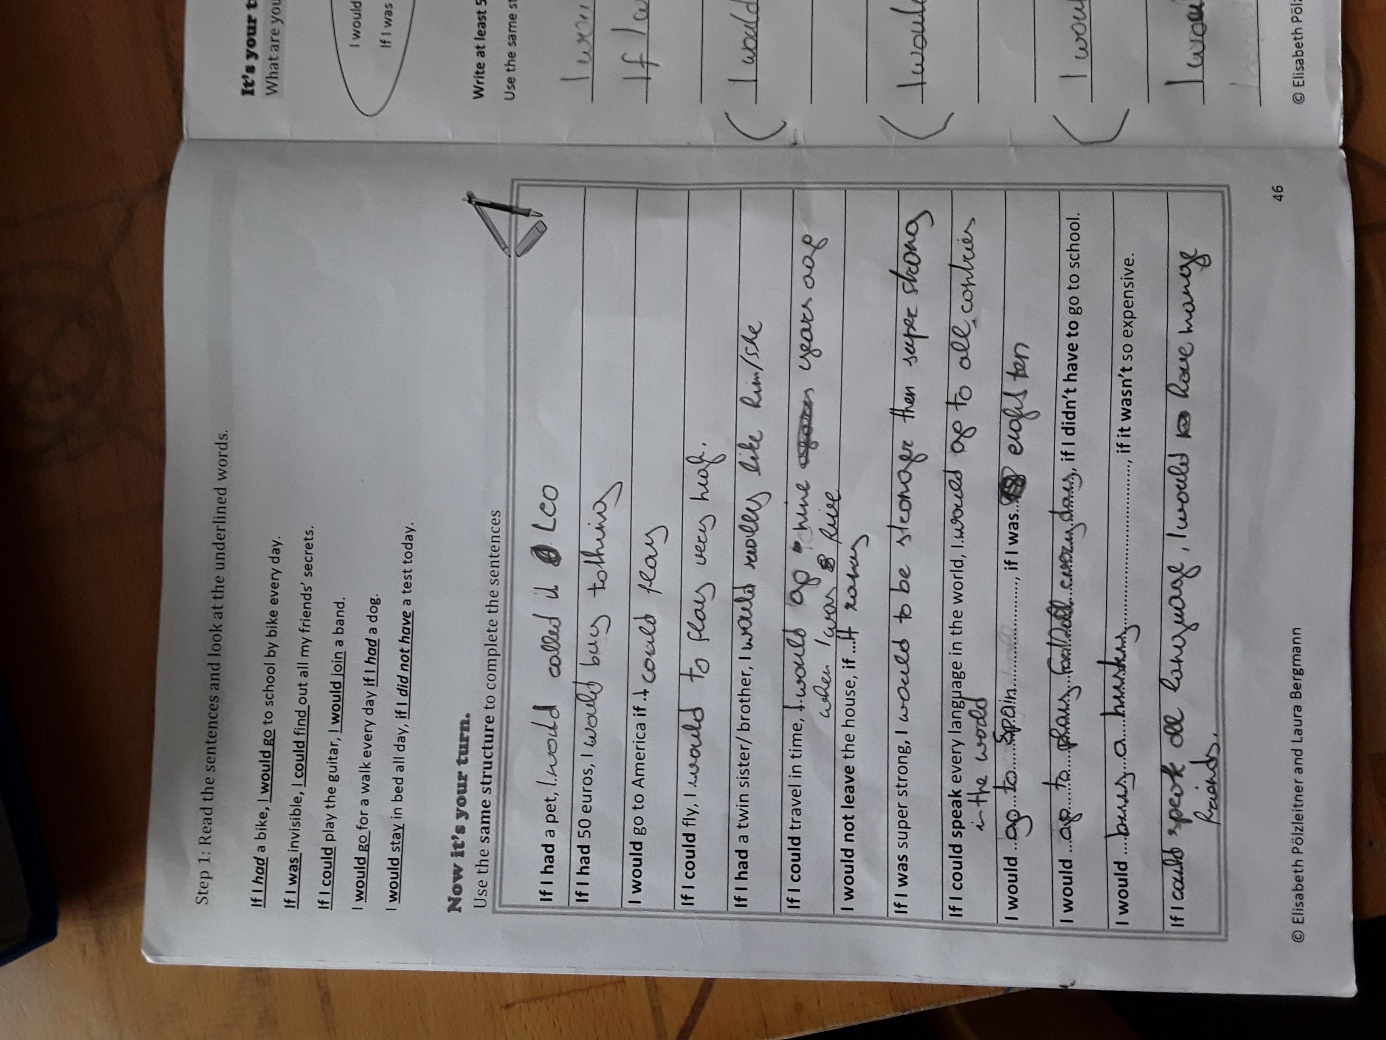 Step 1: Read the sentences and look at the underlined words.
If I had a bike, I would go to school by bike every day.
If I was invisible, I could find out all my friends' secrets.
If I could play the guitar, I would join a band.
I would go for a walk every day if I had a dog.
I would stay in bed all day, if I did not have a test today.
Now it's your turn.
Use the same structure to complete the sentences
If I had a pet, I would called it Leo
If I had 50 euros, I would buy tothing
I would go to America if I could flay
If I could fly, I would to flay very high.
If I had a twin sister/ brother, I would really like him/she
If I could travel in time, I would go nine years ago
when I was five
I would not leave the house, if it rainy
If I was super strong, I would to be stronger then super strong
If I could speak every language in the world, I would go to all contries
in the world
I would go to Spain, if I was eight ten
I would go to play football every day, if I didn't have to go to school.
I would buy a husky, if it wasn't so expensive.
If I could speak all language, I would have many
friends.
© Elisabeth Pölzleitner and Laura Bergmann
46
It's your t
What are you
I would
If I was
Write at least 5
Use the same st
I wou
If I w
I would
I would
I wou
I wou
© Elisabeth Pölz